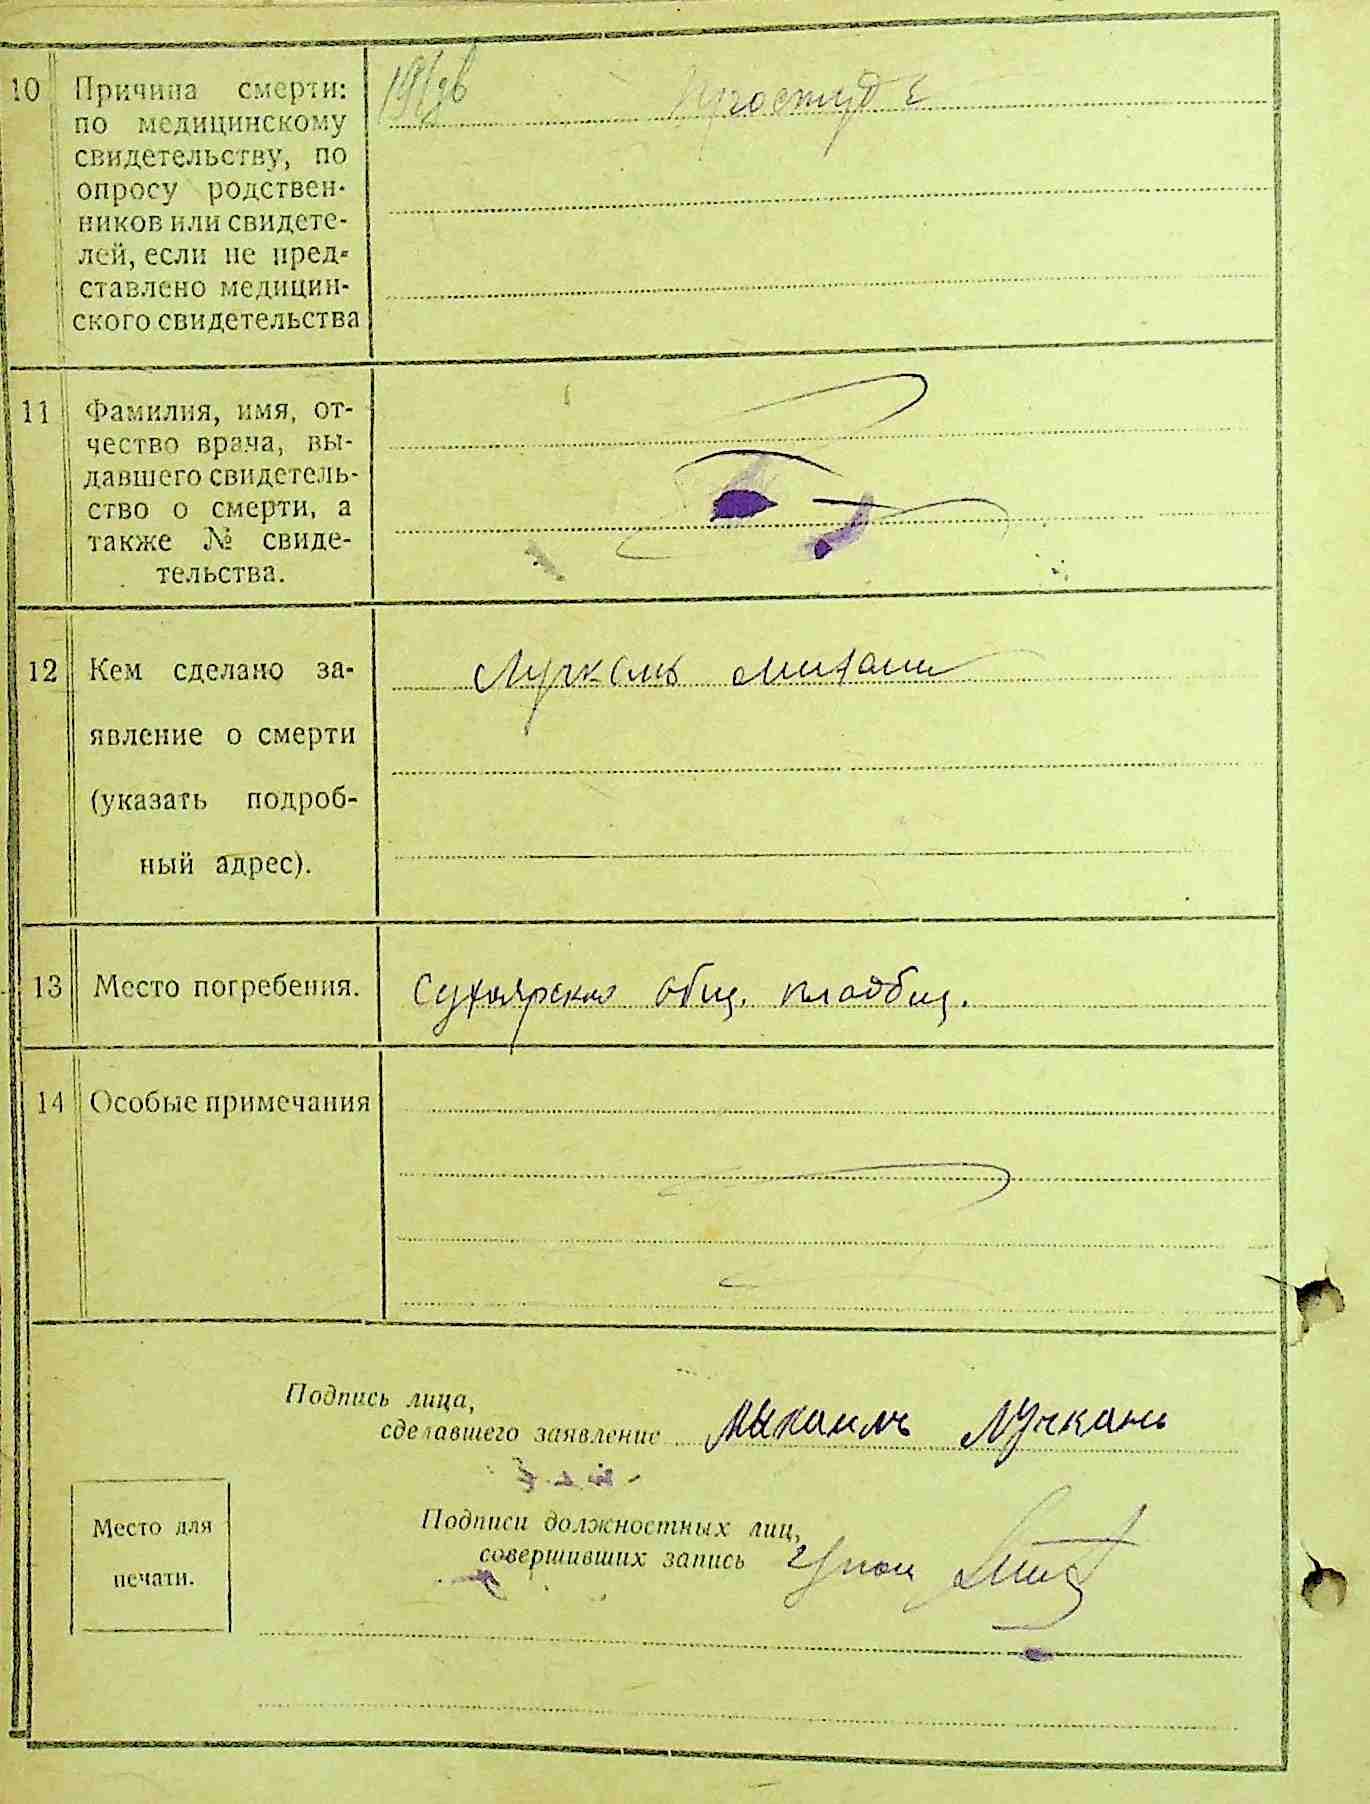 10 Причина смерти: Простуд
по медицинскому
свидетельству, по
опросу родствен-
ников или свидете-
лей, если не пред-
ставлено медицин-
ского свидетельства
11 Фамилия, имя, от-
чество врача, вы-
давшего свидетель-
ство о смерти, а
также № свиде-
тельства.
12 Кем сделано за- Лучкань
явление о смерти
(указать подроб-
ный адрес).
13 Место погребения. Сухоярское общ. кладбищ.
14 Особые примечания
Подпись лица,
сделавшего заявление Михаилъ Лучкань
Подписи должностных лиц,
совершивших запись
Место для
печати.